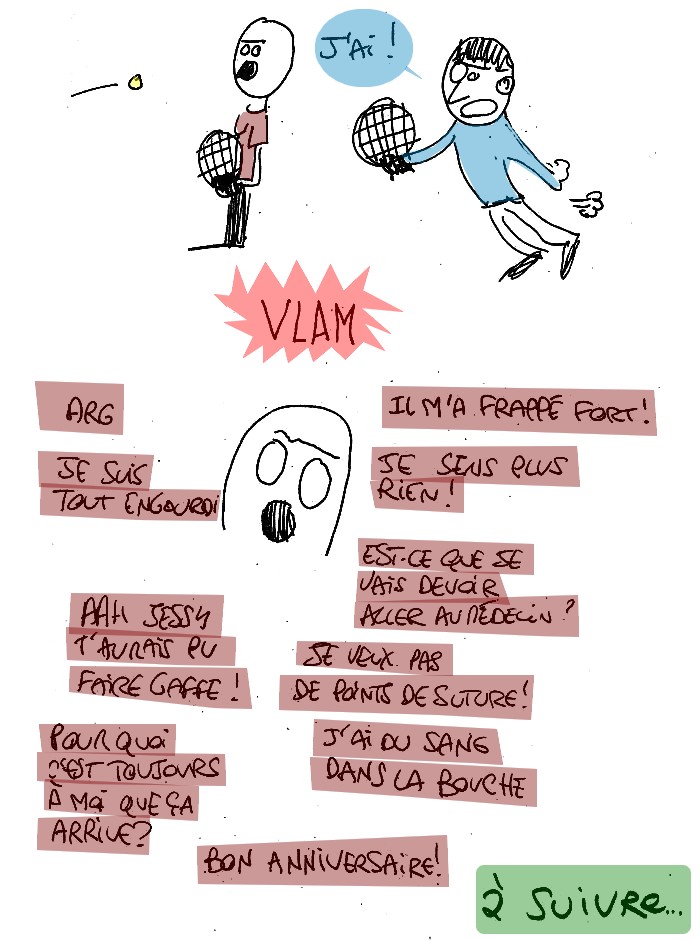 J'Ai!
VLAM
ARG
IL M'A FRAPPÉ FORT!
JE SUIS
TOUT ENGOURDI
JE SENS PLUS
RIEN!
EST-CE QUE JE
VAIS DEVOIR
ALLER AU MÉDECIN?
AAH JESSY
T'AURAIS PU
FAIRE GAFFE!
JE VEUX PAS
DE POINTS DE SUTURE!
POURQUOI
C'EST TOUJOURS
À MOI QUE ÇA
ARRIVE?
J'AI DU SANG
DANS LA BOUCHE
BON ANNIVERSAIRE!
À SUIVRE...